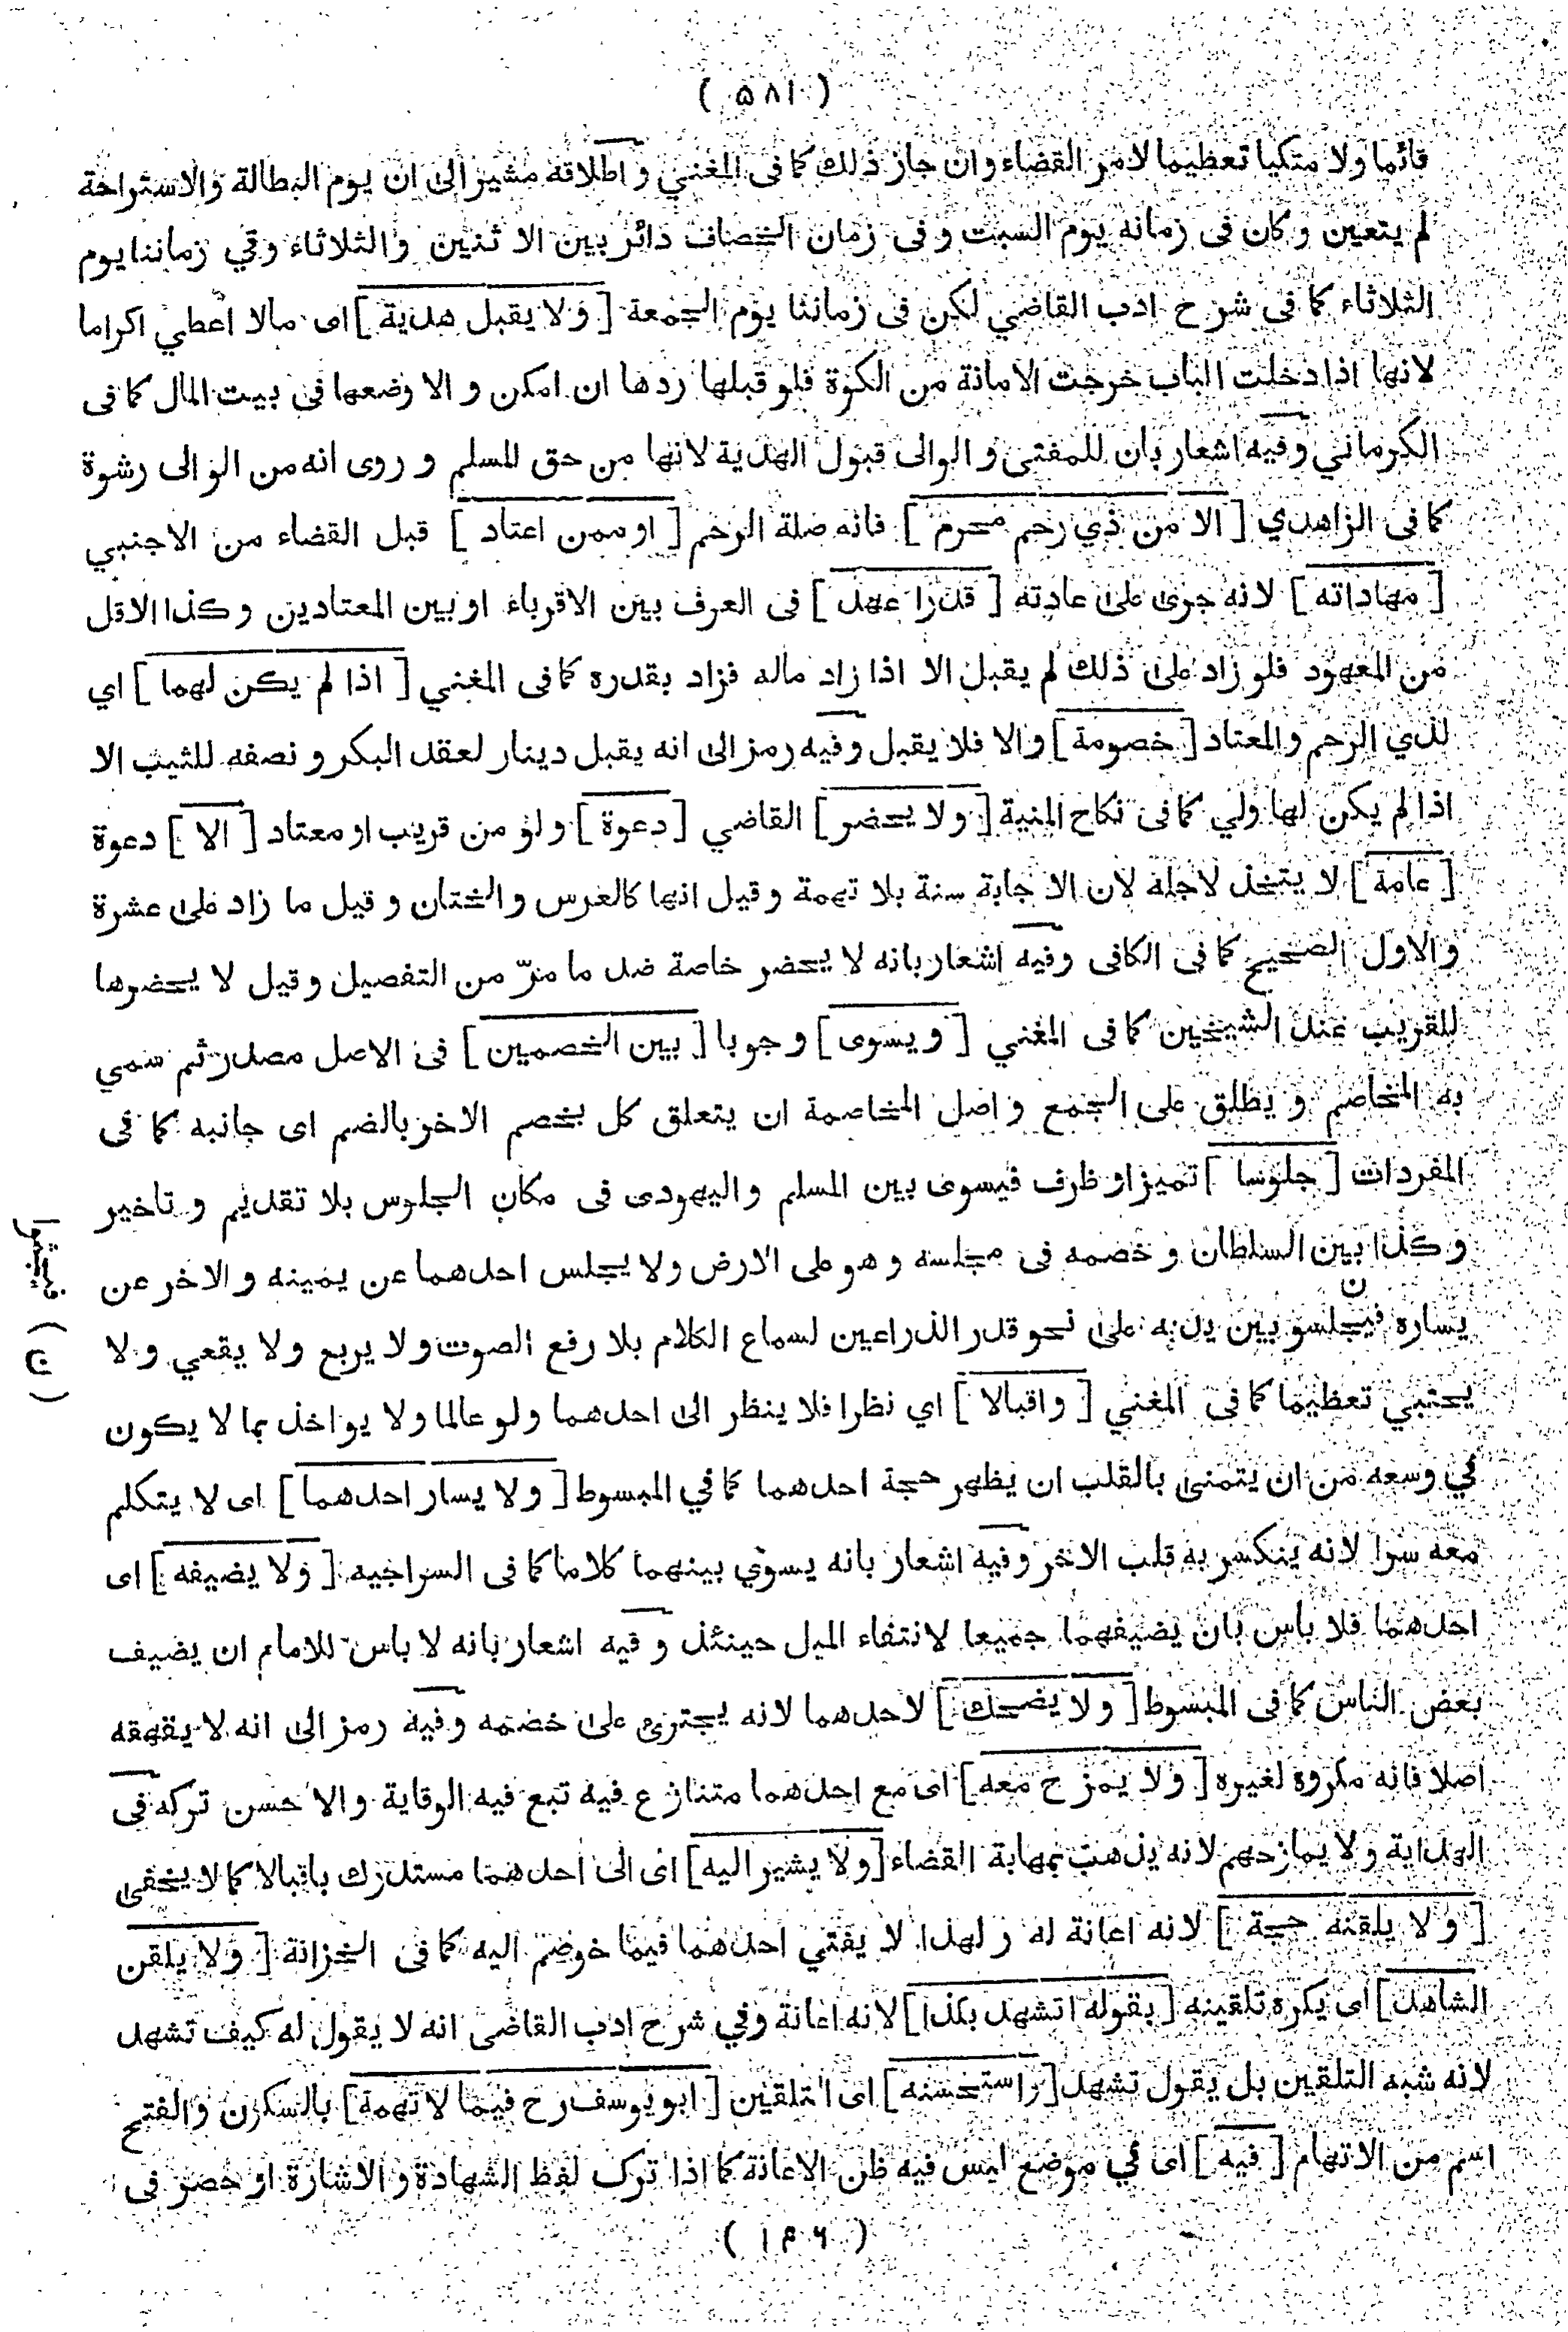 ( ۵۸۱ )
قائما ولا متكيا تعظيما لامر القضاء وان جاز ذلك كما فى المغني و اطلاقه مشير الى ان يوم البطالة والاستراحة
لم يتعين و كان فى زمانه يوم السبت و فى زمان الخصاف دائر بين الا ثنين والثلاثاء وفي زماننا يوم
الثلاثاء كما فى شرح ادب القاضي لكن فى زماننا يوم الجمعة [ ولا يقبل هدية ] اى مالا اعطي اكراما
لانها اذا دخلت الباب خرجت الامانة من الكوة فلو قبلها ردها ان امكن و الا وضعها فى بيت المال كما فى
الكرماني وفيه اشعار بان للمفتى و الوالى قبول الهدية لانها من حق المسلم و روى انه من الوالى رشوة
كما فى الزاهدي [ الا من ذي رحم محرم ] فانه صلة الرحم [ او ممن اعتاد ] قبل القضاء من الاجنبي
[ مهاداته ] لانه جرى على عادته [ قدرا عهد ] فى العرف بين الاقرباء او بين المعتادين و كذا الاقل
من المعهود فلو زاد على ذلك لم يقبل الا اذا زاد ماله فزاد بقدره كما فى المغني [ اذا لم يكن لهما ] اي
لذي الرحم والمعتاد [ خصومة ] والا فلا يقبل وفيه رمز الى انه يقبل دينار لعقد البكر و نصفه للثيب الا
اذا لم يكن لها ولي كما فى نكاح المنية [ ولا يحضر ] القاضي [ دعوة ] ولو من قريب او معتاد [ الا ] دعوة
[ عامة ] لا يتخذ لاجله لان الا جابة سنة بلا تهمة وقيل انها كالعرس والختان و قيل ما زاد على عشرة
والاول الصحيح كما فى الكافى وفيه اشعار بانه لا يحضر خاصة ضد ما مرّ من التفصيل وقيل لا يحضرها
للقريب عند الشيخين كما فى المغني [ ويسوى ] وجوبا [ بين الخصمين ] فى الاصل مصدر ثم سمي
به المخاصم و يطلق على الجمع و اصل المخاصمة ان يتعلق كل بخصم الاخر بالضم اى جانبه كما فى
المفردات [ جلوسا ] تميز او ظرف فيسوى بين المسلم واليهودى فى مكان الجلوس بلا تقديم و تاخير
و كذا بين السلطان و خصمه فى مجلسه وهو على الارض ولا يجلس احدهما عن يمينه والاخر عن
يساره فيجلسو بين يديه على نحو قدر الذراعين لسماع الكلام بلا رفع الصوت ولا يربع ولا يقعي ولا
يحتبي تعظيما كما فى المغني [ واقبالا ] اي نظرا فلا ينظر الى احدهما ولو عالما ولا يواخذ بما لا يكون
في وسعه من ان يتمنى بالقلب ان يظهر حجة احدهما كما في المبسوط [ ولا يسار احدهما ] اى لا يتكلم
معه سرا لانه ينكسر به قلب الاخر وفيه اشعار بانه يسوّي بينهما كلاما كما فى السراجيه [ ولا يضيفه ] اى
احدهما فلا باس بان يضيفهما جميعا لانتفاء الميل حينئذ و فيه اشعار بانه لا باس للامام ان يضيف
بعض الناس كما فى المبسوط [ ولا يضحك ] لاحدهما لانه يجتزئ على خصمه وفيه رمز الى انه لا يقهقه
اصلا فانه مكروه لغيره [ ولا يمزح معه ] اى مع احدهما متنازع فيه تبع فيه الوقاية والا حسن تركه فى
الهداية ولا يمازحهم لانه يذهب بمهابة القضاء [ ولا يشير اليه ] اى الى احدهما مستدرك باقبالا كما لا يخفى
[ ولا يلقنه حجة ] لانه اعانة له و لهذا لا يفتي احدهما فيما خوصم اليه كما فى الخزانة [ ولا يلقن
الشاهد ] اى يكره تلقينه [ بقوله اتشهد بكذا ] لانه اعانة وفي شرح ادب القاضى انه لا يقول له كيف تشهد
لانه شبه التلقين بل يقول تشهد [ واستحسنه ] اى التلقين [ ابو يوسف رح فيما لا تهمة ] بالسكون والفتح
اسم من الاتهام [ فيه ] اى في موضع ليس فيه ظن الاعانة كما اذا ترك لفظ الشهادة والاشارة او حصر فى
( ۱۴۶ )
( ن )